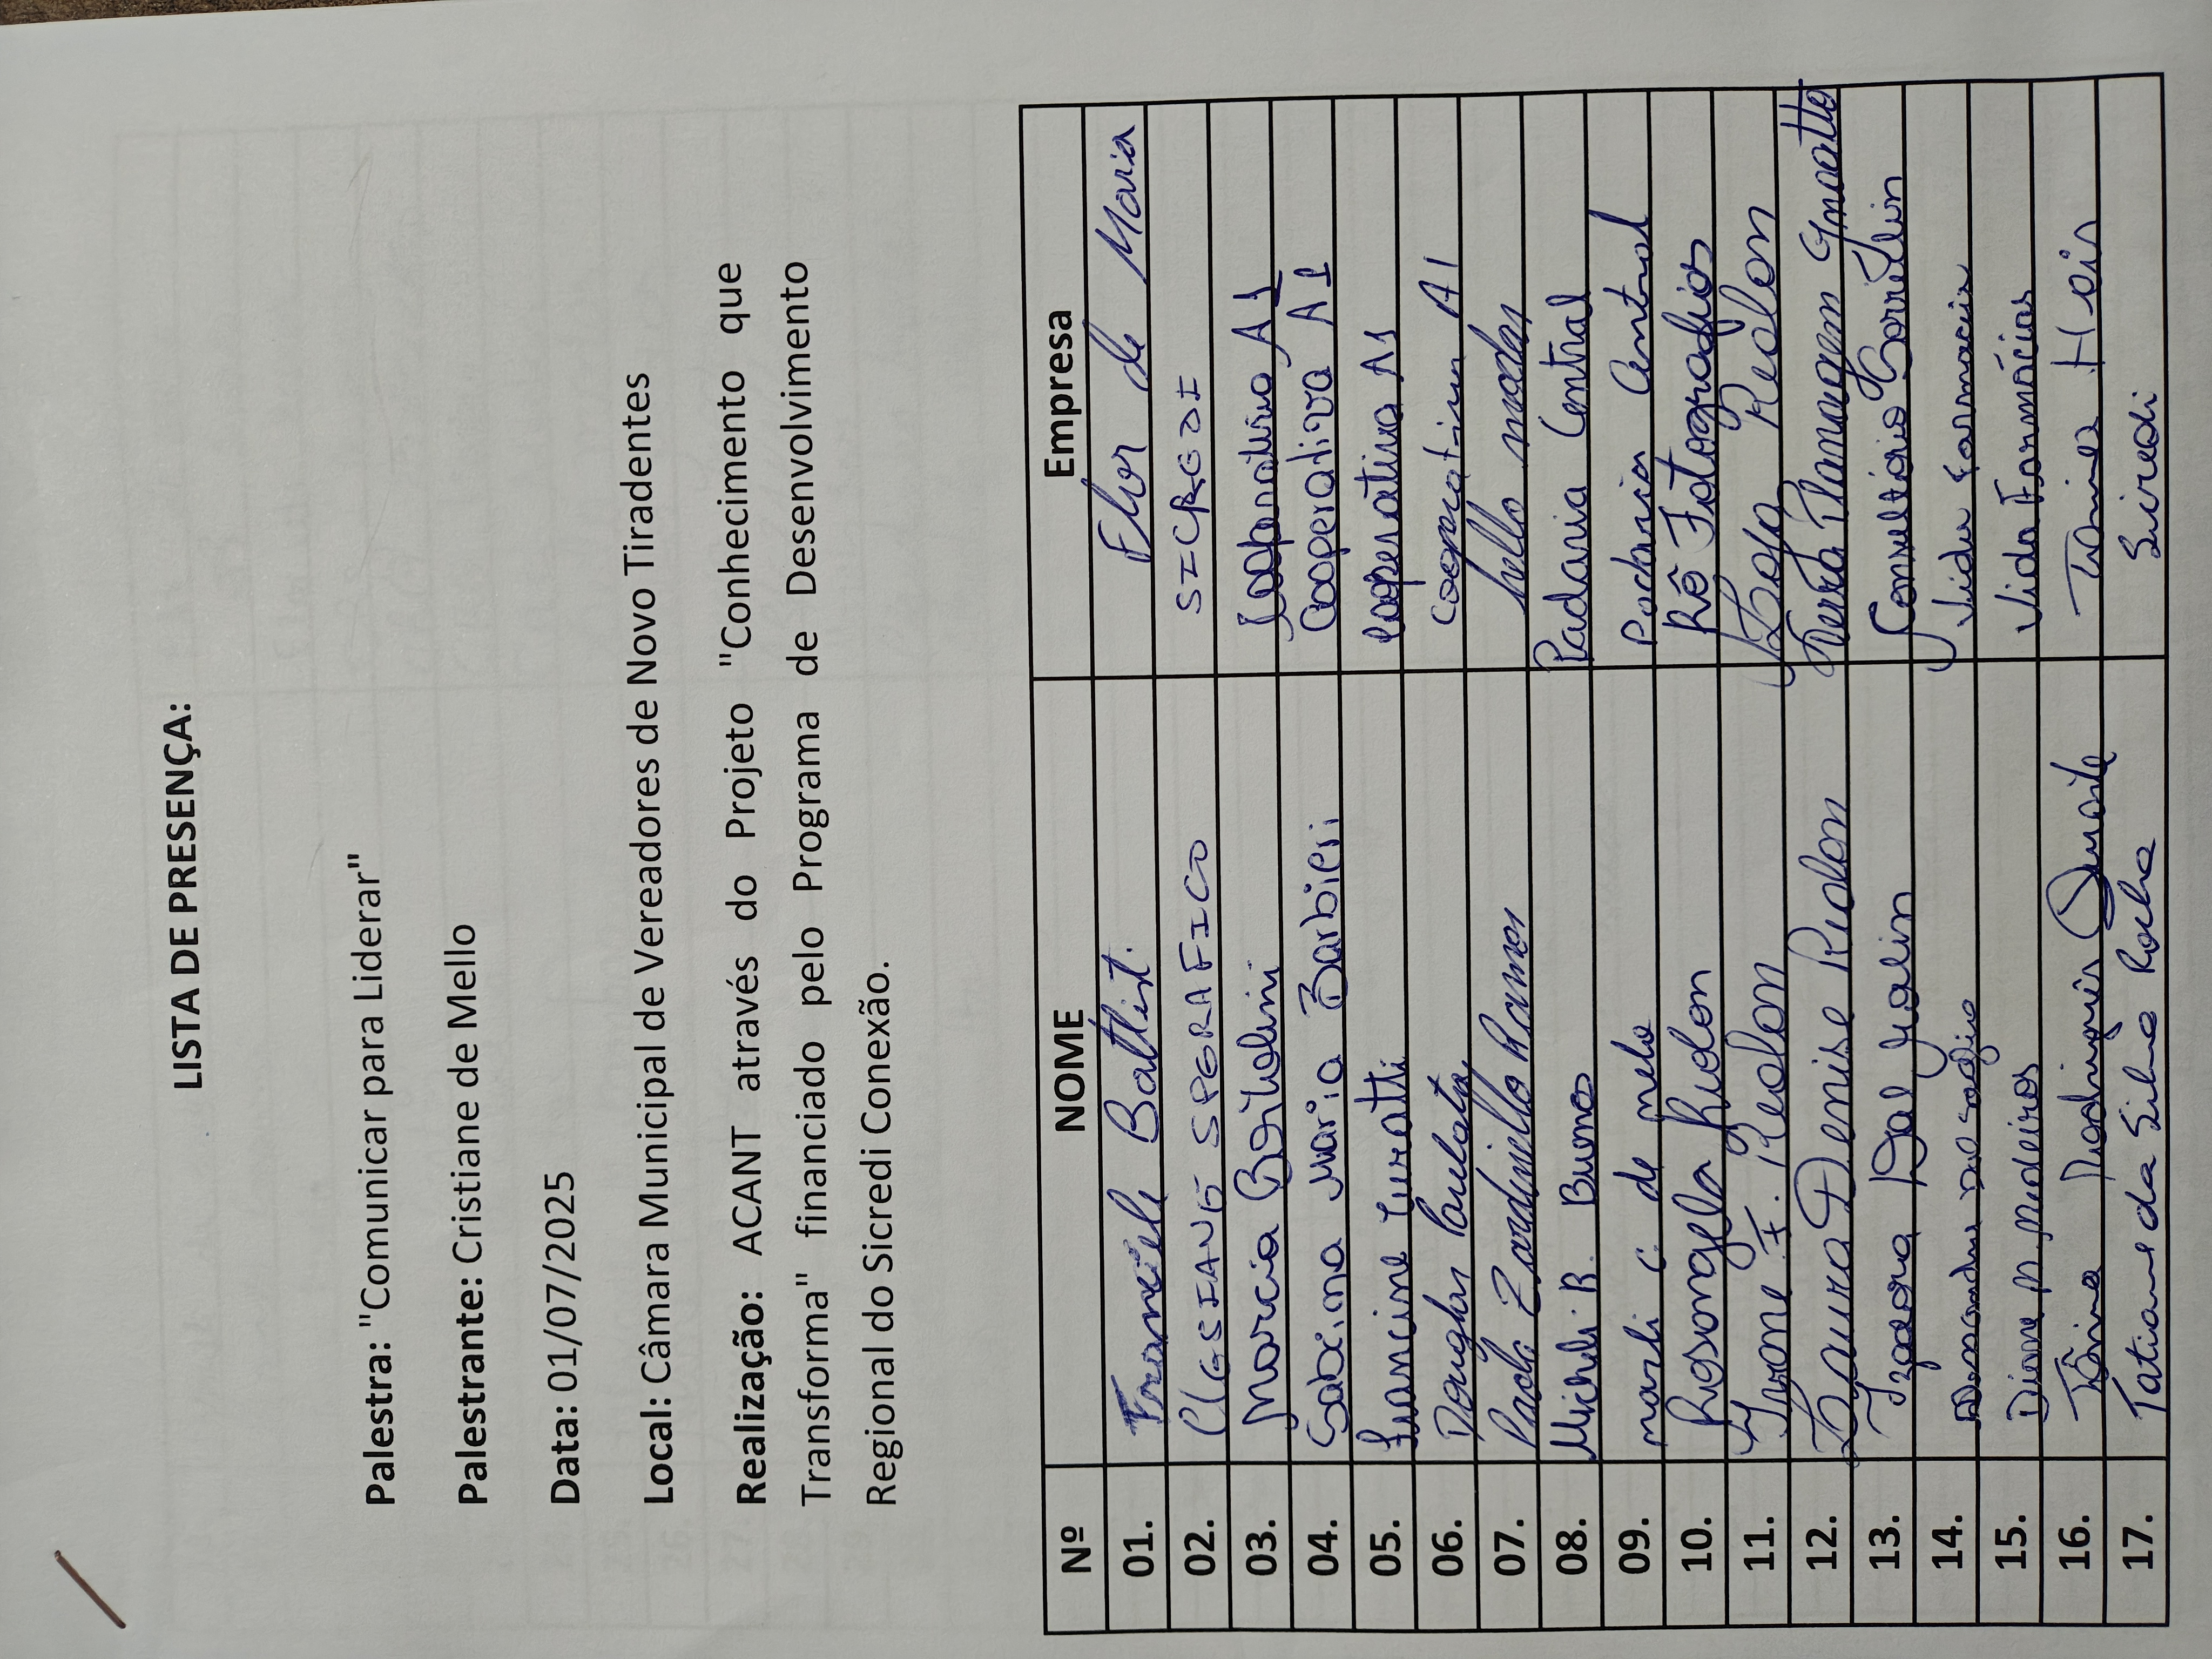 LISTA DE PRESENÇA:
Palestra: "Comunicar para Liderar"
Palestrante: Cristiane de Mello
Data: 01/07/2025
Local: Câmara Municipal de Vereadores de Novo Tiradentes
Realização: ACANT através do Projeto "Conhecimento que
Transforma" financiado pelo Programa de Desenvolvimento
Regional do Sicredi Conexão.
Nº NOME Empresa
01. Franciele Battisti Flor de Maria
02. SICREDI
03. Marcia Cooperativa A1
04. Maria Barbieri Cooperativa A1
05. Francine Cooperativa A1
06. Douglas Cooperativa A1
07. Paola Ramos modas
08. Micheli B. Bueno Padaria Central
09. marli c. de melo Padaria Central
10. Rosangela Redon Rê Fotografias
11. Ivone F. Redon Loja Redon
12. Laura Denise Redon Terraplanagem
13. Izadora Consultório
14. Vida Farmacia
15. Medeiros Vida Farmácias
16. Tânia Rodrigues Duarte Hair
17. Tatiane da Silva Rocha Sicredi